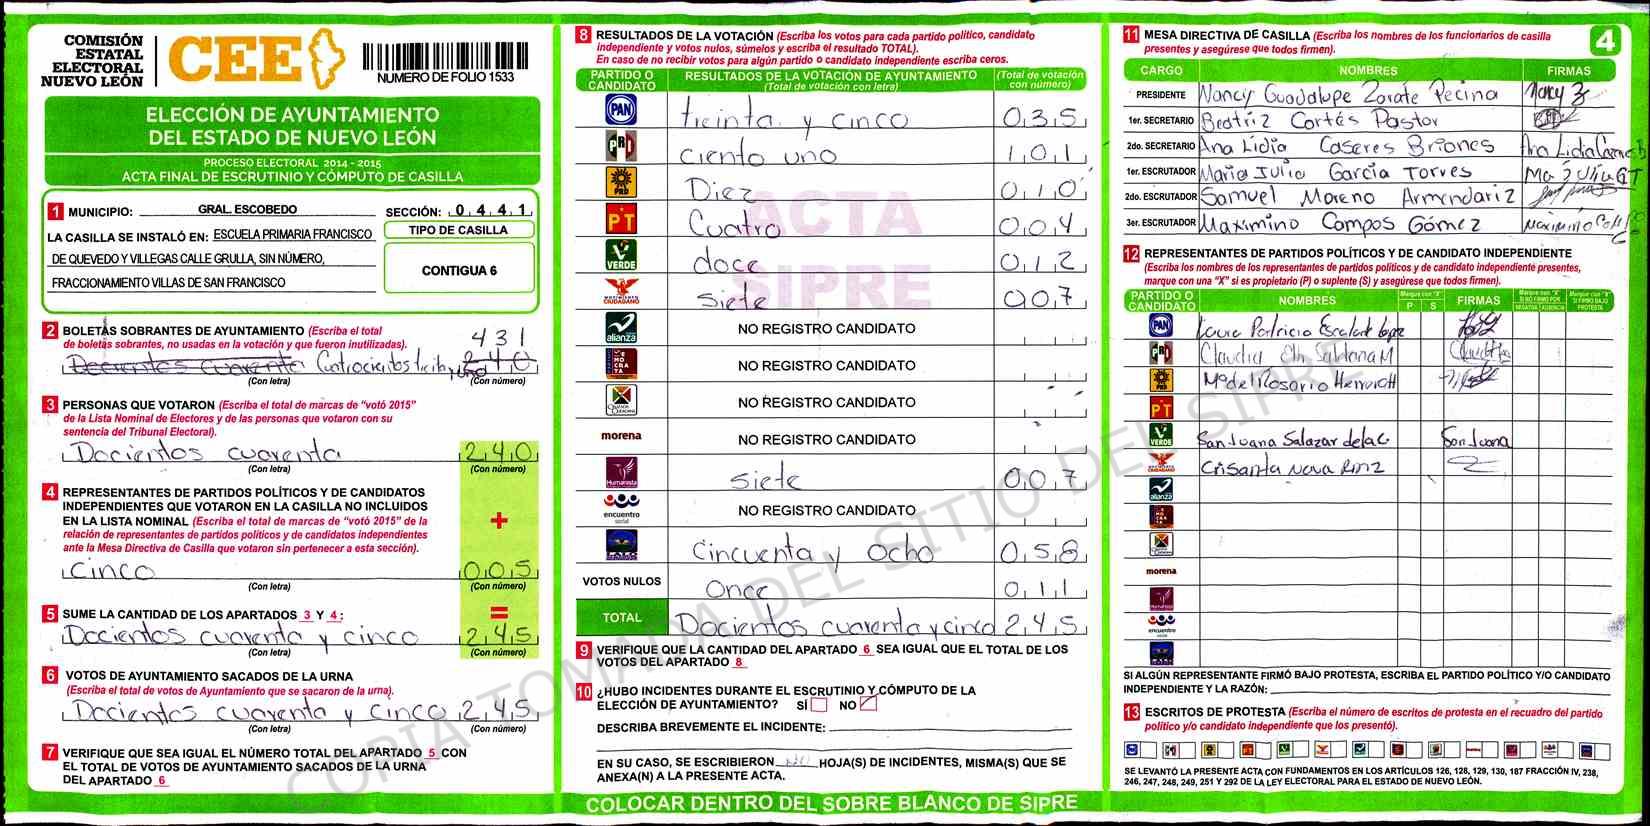 COMISIÓN
ESTATAL
ELECTORAL
NUEVO LEÓN
CEE
NUMERO DE FOLIO 1533
ELECCIÓN DE AYUNTAMIENTO
DEL ESTADO DE NUEVO LEÓN
PROCESO ELECTORAL 2014 - 2015
ACTA FINAL DE ESCRUTINIO Y CÓMPUTO DE CASILLA
1 MUNICIPIO: GRAL. ESCOBEDO SECCIÓN: 0 4 4 1
LA CASILLA SE INSTALÓ EN: ESCUELA PRIMARIA FRANCISCO
DE QUEVEDO Y VILLEGAS CALLE GRULLA, SIN NÚMERO,
FRACCIONAMIENTO VILLAS DE SAN FRANCISCO
TIPO DE CASILLA
CONTIGUA 6
2 BOLETAS SOBRANTES DE AYUNTAMIENTO (Escriba el total
de boletas sobrantes, no usadas en la votación y que fueron inutilizadas).
4 3 1
Docientos cuarenta Cuatrocientos treinta y uno 2 4 0
(Con letra) (Con número)
3 PERSONAS QUE VOTARON (Escriba el total de marcas de "votó 2015"
de la Lista Nominal de Electores y de las personas que votaron con su
sentencia del Tribunal Electoral).
Docientos cuarenta 2 4 0
(Con letra) (Con número)
4 REPRESENTANTES DE PARTIDOS POLÍTICOS Y DE CANDIDATOS
INDEPENDIENTES QUE VOTARON EN LA CASILLA NO INCLUIDOS
EN LA LISTA NOMINAL (Escriba el total de marcas de "votó 2015" de la
relación de representantes de partidos políticos y de candidatos independientes
ante la Mesa Directiva de Casilla que votaron sin pertenecer a esta sección).
+
Cinco 0 0 5
(Con letra) (Con número)
5 SUME LA CANTIDAD DE LOS APARTADOS 3 Y 4: =
Docientos cuarenta y cinco 2 4 5
(Con letra) (Con número)
6 VOTOS DE AYUNTAMIENTO SACADOS DE LA URNA
(Escriba el total de votos de Ayuntamiento que se sacaron de la urna).
Docientos cuarenta y cinco 2 4 5
(Con letra) (Con número)
7 VERIFIQUE QUE SEA IGUAL EL NÚMERO TOTAL DEL APARTADO 5 CON
EL TOTAL DE VOTOS DE AYUNTAMIENTO SACADOS DE LA URNA
DEL APARTADO 6
8 RESULTADOS DE LA VOTACIÓN (Escriba los votos para cada partido político, candidato
independiente y votos nulos, súmelos y escriba el resultado TOTAL).
En caso de no recibir votos para algún partido o candidato independiente escriba ceros.
PARTIDO O CANDIDATO RESULTADOS DE LA VOTACIÓN DE AYUNTAMIENTO (Total de votación con letra) (Total de votación con número)
PAN treinta y cinco 0 3 5
PRI ciento uno 1 0 1
PRD Diez 0 1 0
PT Cuatro 0 0 4
VERDE doce 0 1 2
MOVIMIENTO CIUDADANO siete 0 0 7
alianza NO REGISTRO CANDIDATO
DEMOCRATA NO REGISTRO CANDIDATO
CRUZADA CIUDADANA NO REGISTRO CANDIDATO
morena NO REGISTRO CANDIDATO
Humanista siete 0 0 7
encuentro social NO REGISTRO CANDIDATO
Cincuenta y ocho 0 5 8
VOTOS NULOS Once 0 1 1
TOTAL Docientos cuarenta y cinco 2 4 5
ACTA
SIPRE
9 VERIFIQUE QUE LA CANTIDAD DEL APARTADO 6 SEA IGUAL QUE EL TOTAL DE LOS
VOTOS DEL APARTADO 8
10 ¿HUBO INCIDENTES DURANTE EL ESCRUTINIO Y CÓMPUTO DE LA
ELECCIÓN DE AYUNTAMIENTO? SÍ NO
DESCRIBA BREVEMENTE EL INCIDENTE:
EN SU CASO, SE ESCRIBIERON NO HOJA(S) DE INCIDENTES, MISMA(S) QUE SE
ANEXA(N) A LA PRESENTE ACTA.
COLOCAR DENTRO DEL SOBRE BLANCO DE SIPRE
COPIA TOMADA DEL SITIO DEL SIPRE
11 MESA DIRECTIVA DE CASILLA (Escriba los nombres de los funcionarios de casilla
presentes y asegúrese que todos firmen).
4
CARGO NOMBRES FIRMAS
PRESIDENTE Nancy Guadalupe Zarate Pecina Nancy Z
1er. SECRETARIO Beatriz Cortés Pastor
2do. SECRETARIO Ana Lidia Caseres Briones Ana Lidia
1er. ESCRUTADOR Maria Julia García Torres Ma Julia GT
2do. ESCRUTADOR Samuel Moreno Armendariz
3er. ESCRUTADOR Maximino Campos Gómez Maximino
12 REPRESENTANTES DE PARTIDOS POLÍTICOS Y DE CANDIDATO INDEPENDIENTE
(Escriba los nombres de los representantes de partidos políticos y de candidato independiente presentes,
marque con una "X" si es propietario (P) o suplente (S) y asegúrese que todos firmen).
PARTIDO O CANDIDATO NOMBRES Marque con "X" P S FIRMAS Marque con "X" SI NO FIRMÓ POR NEGATIVA AUSENCIA Marque con "X" SI FIRMÓ BAJO PROTESTA
PAN Laura Patricia Escalante
PRI Claudia Saldana M
PRD Ma del Rosario
PT
VERDE San Juana Salazar San Juana
Crisanta Nava
alianza
morena
Humanista
encuentro social
SI ALGÚN REPRESENTANTE FIRMÓ BAJO PROTESTA, ESCRIBA EL PARTIDO POLÍTICO Y/O CANDIDATO
INDEPENDIENTE Y LA RAZÓN:
13 ESCRITOS DE PROTESTA (Escriba el número de escritos de protesta en el recuadro del partido
político y/o candidato independiente que los presentó).
SE LEVANTÓ LA PRESENTE ACTA CON FUNDAMENTOS EN LOS ARTÍCULOS 126, 128, 129, 130, 187 FRACCIÓN IV, 238,
246, 247, 248, 249, 251 Y 292 DE LA LEY ELECTORAL PARA EL ESTADO DE NUEVO LEÓN.